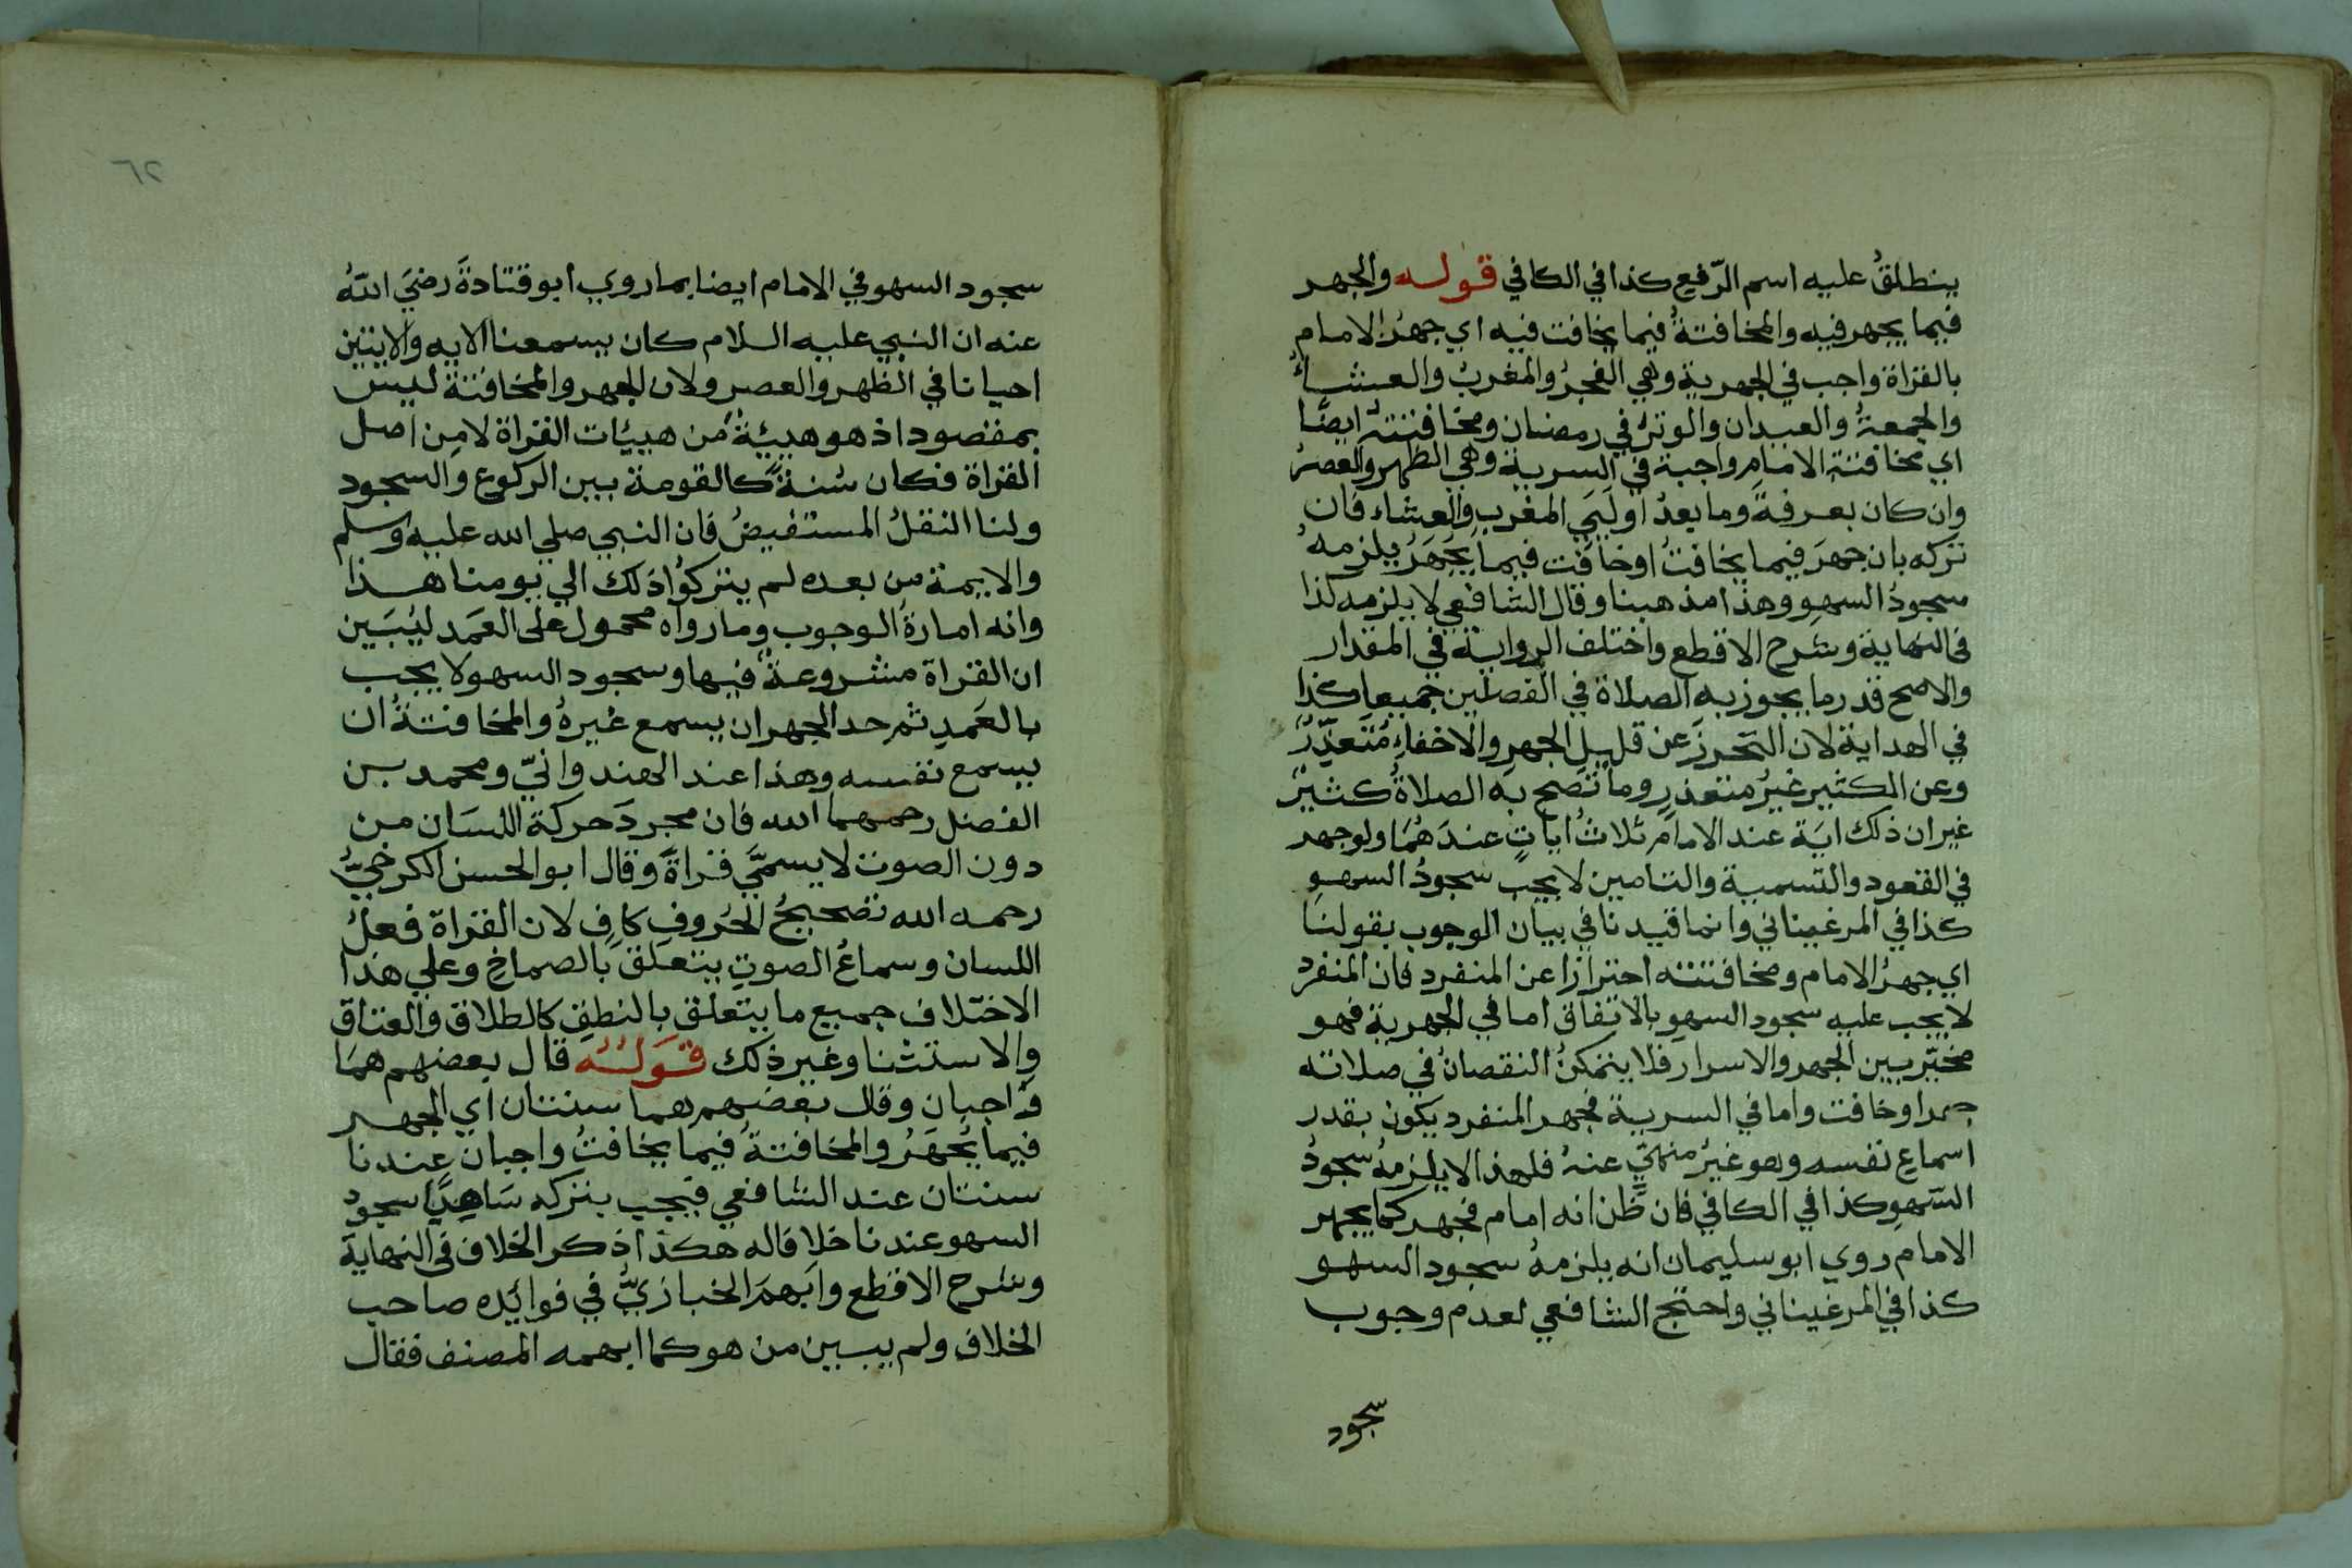 ينطلقُ عليه اسم الرّفع كذا في الكافي قوله والجهر
فيما يجهر فيه والمخافتةُ فيما يخافت فيه اي جهرُ الامام
بالقراة واجب في الجهرية وهي الفجرُ والمغربُ والعشاءُ
والجمعةُ والعيدان والوترُ في رمضان ومخافتتهُ ايضًا
اي مخافتة الامام واجبة في السرية وهي الظهر والعصرُ
وان كان بعرفةَ وما بعدُ اولَيَي المغرب والعشاء فان
تركه بان جهرَ فيما يخافتُ اوخافَت فيما يُجهَرُ يلزمهُ
سجودُ السهوِ وهذا مذهبنا وقال الشافعي لا يلزمه كذا
فى النهاية وشرح الاقطع واختلف الرواية في المقدار
والاصح قدر ما يجوز به الصلاة في الفصلين جميعا كذا
في الهداية لان التحرزَ عن قليل الجهرِ والاخفاءِ مُتَعذِّرٌ
وعن الكثير غيرُ متعذرٍ وما تصح به الصلاةُ كثيرٌ
غير ان ذلك ايَة عند الامامِ ثلاثُ اياتٍ عندَهُمَا ولوجهر
في القعود والتسمية والتامين لا يجب سجودُ السهوِ
كذا في المرغيناني وانما قيدنا في بيان الوجوب بقولنا
اي جهرُ الامام ومخافتته احترازا عن المنفرد فان المنفرد
لا يجب عليه سجود السهوِ بالاتفاق اما في الجهرية فهو
مخيّر بين الجهر والاسرار فلا يتمكنُ النقصانُ في صلاته
جهرا وخافت واما في السرية فجهر المنفرد يكون بقدر
اسماع نفسه وهو غيرُ منهيٍّ عنهُ فلهذا لا يلزمهُ سجودُ
السّهوِ كذا في الكافي فان ظن انه امام فجهر كما يجهر
الامام روي ابو سليمان انه يلزمهُ سجود السهو
كذا في المرغيناني واحتج الشافعي لعدم وجوب
سجود
٦٢
سجود السهو في الامام ايضا بما روي ابو قتادةَ رضيَ اللهُ
عنه ان النبي عليه السلام كان يسمعنا الايه والايتين
احيانا في الظهر والعصر ولان الجهر والمخافتة ليس
بمقصود اذ هو هيئةٌ من هيئات القراة لا مِن اصل
القراة فكان سُنةً كالقومة بين الركوع والسجود
ولنا النقلُ المستفيضُ فان النبي صلي الله عليه وسلم
والايمة من بعده لم يتركوُا ذلك الي يومنا هذا
وانه امارةُ الوجوب وما رواه محمول على العَمَد ليُبَين
ان القراة مشروعةٌ فيها وسجود السهو لا يجب
بالعَمدِ ثم حد الجهر ان يسمع غيرهُ والمخافتةُ ان
يسمع نفسه وهذا عند الهندوانيّ ومحمد بن
الفضل رحمهما الله فان مجردَ حركة اللسَان من
دون الصوت لا يسمّي قراةً وقال ابو الحسن الكرخيُّ
رحمه الله تصحيحُ الحُروفِ كافٍ لان القراة فعلُ
اللسان وسماعُ الصوتِ يتعلق بالصماخِ وعلي هذا
الاختلاف جميع ما يتعلق بالنطقِ كالطلاق والعتاق
والاستثنا وغير ذلك قوله قال بعضهم همَا
واجبان وقال بعضهم هما سنتان اي الجهر
فيما يُجهَرُ والمخافتةُ فيما يخافتُ واجبان عندنا
سنتان عند الشافعي فيجب بتركه سَاهِيًا سجود
السهو عندنا خلافا له هكذا ذكر الخلاف في النهاية
وشرح الاقطع وابهمَ الخبازيُّ في فوائده صاحب
الخلاف ولم يبين من هو كما ابهمه المصنف فقال